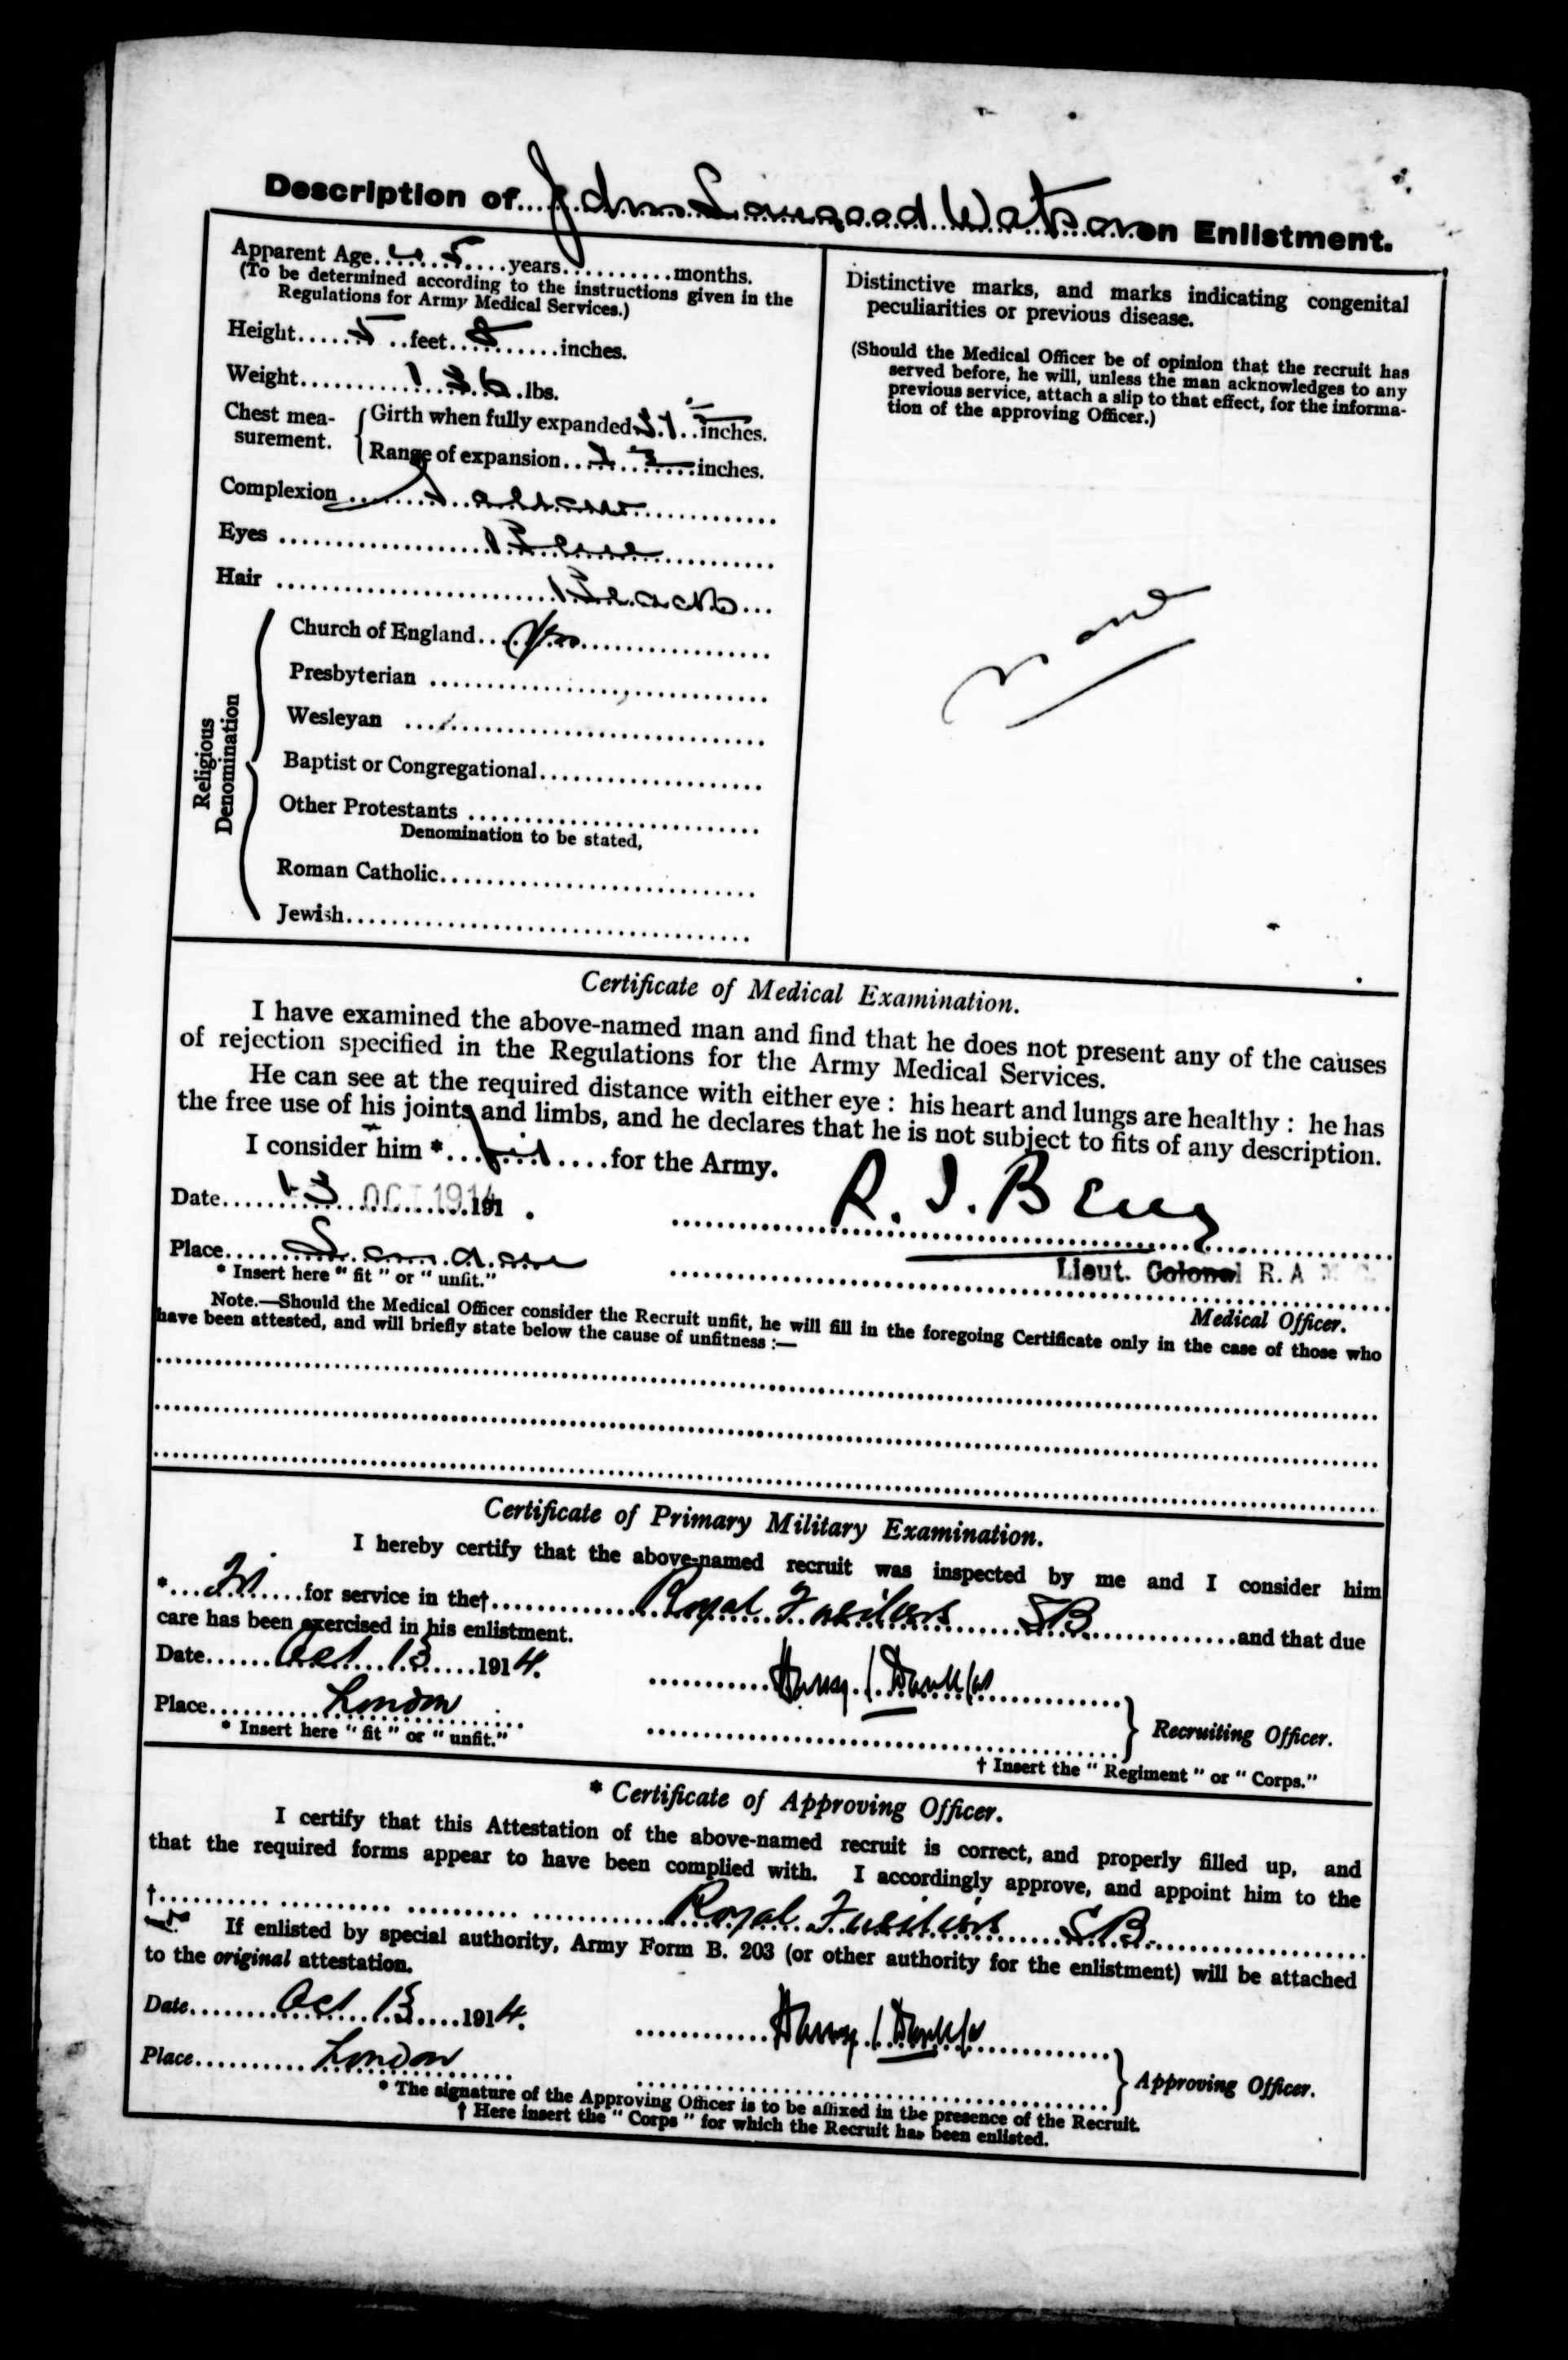 Description of John Longood Watson on Enlistment.
Apparent Age 45 years months.
(To be determined according to the instructions given in the
Regulations for Army Medical Services.)
Height 5 feet 8 inches.
Weight 136 lbs.
Chest mea-
surement.
Girth when fully expanded 37 inches.
Range of expansion inches.
Complexion Sallow
Eyes Blue
Hair Black
Religious
Denomination
Church of England Yes
Presbyterian
Wesleyan
Baptist or Congregational
Other Protestants
Denomination to be stated,
Roman Catholic
Jewish
Distinctive marks, and marks indicating congenital
peculiarities or previous disease.
(Should the Medical Officer be of opinion that the recruit has
served before, he will, unless the man acknowledges to any
previous service, attach a slip to that effect, for the informa-
tion of the approving Officer.)
None
Certificate of Medical Examination.
I have examined the above-named man and find that he does not present any of the causes
of rejection specified in the Regulations for the Army Medical Services.
He can see at the required distance with either eye : his heart and lungs are healthy : he has
the free use of his joints and limbs, and he declares that he is not subject to fits of any description.
I consider him * fit for the Army.
Date 13 OCT 1914 191 .
R. J.
Place London
Lieut. Colonel R. A M C
* Insert here " fit " or " unfit."
Medical Officer.
Note.—Should the Medical Officer consider the Recruit unfit, he will fill in the foregoing Certificate only in the case of those who
have been attested, and will briefly state below the cause of unfitness :—
Certificate of Primary Military Examination.
I hereby certify that the above-named recruit was inspected by me and I consider him
* Fit for service in the† Royal Fusiliers SB and that due
care has been exercised in his enlistment.
Date Oct 13 1914.
Place London
Recruiting Officer.
* Insert here " fit " or " unfit."
† Insert the " Regiment " or " Corps."
* Certificate of Approving Officer.
I certify that this Attestation of the above-named recruit is correct, and properly filled up, and
that the required forms appear to have been complied with. I accordingly approve, and appoint him to the
† Royal Fusiliers SB.
If enlisted by special authority, Army Form B. 203 (or other authority for the enlistment) will be attached
to the original attestation.
Date Oct 13 1914.
Place London
Approving Officer.
* The signature of the Approving Officer is to be affixed in the presence of the Recruit.
† Here insert the " Corps " for which the Recruit has been enlisted.